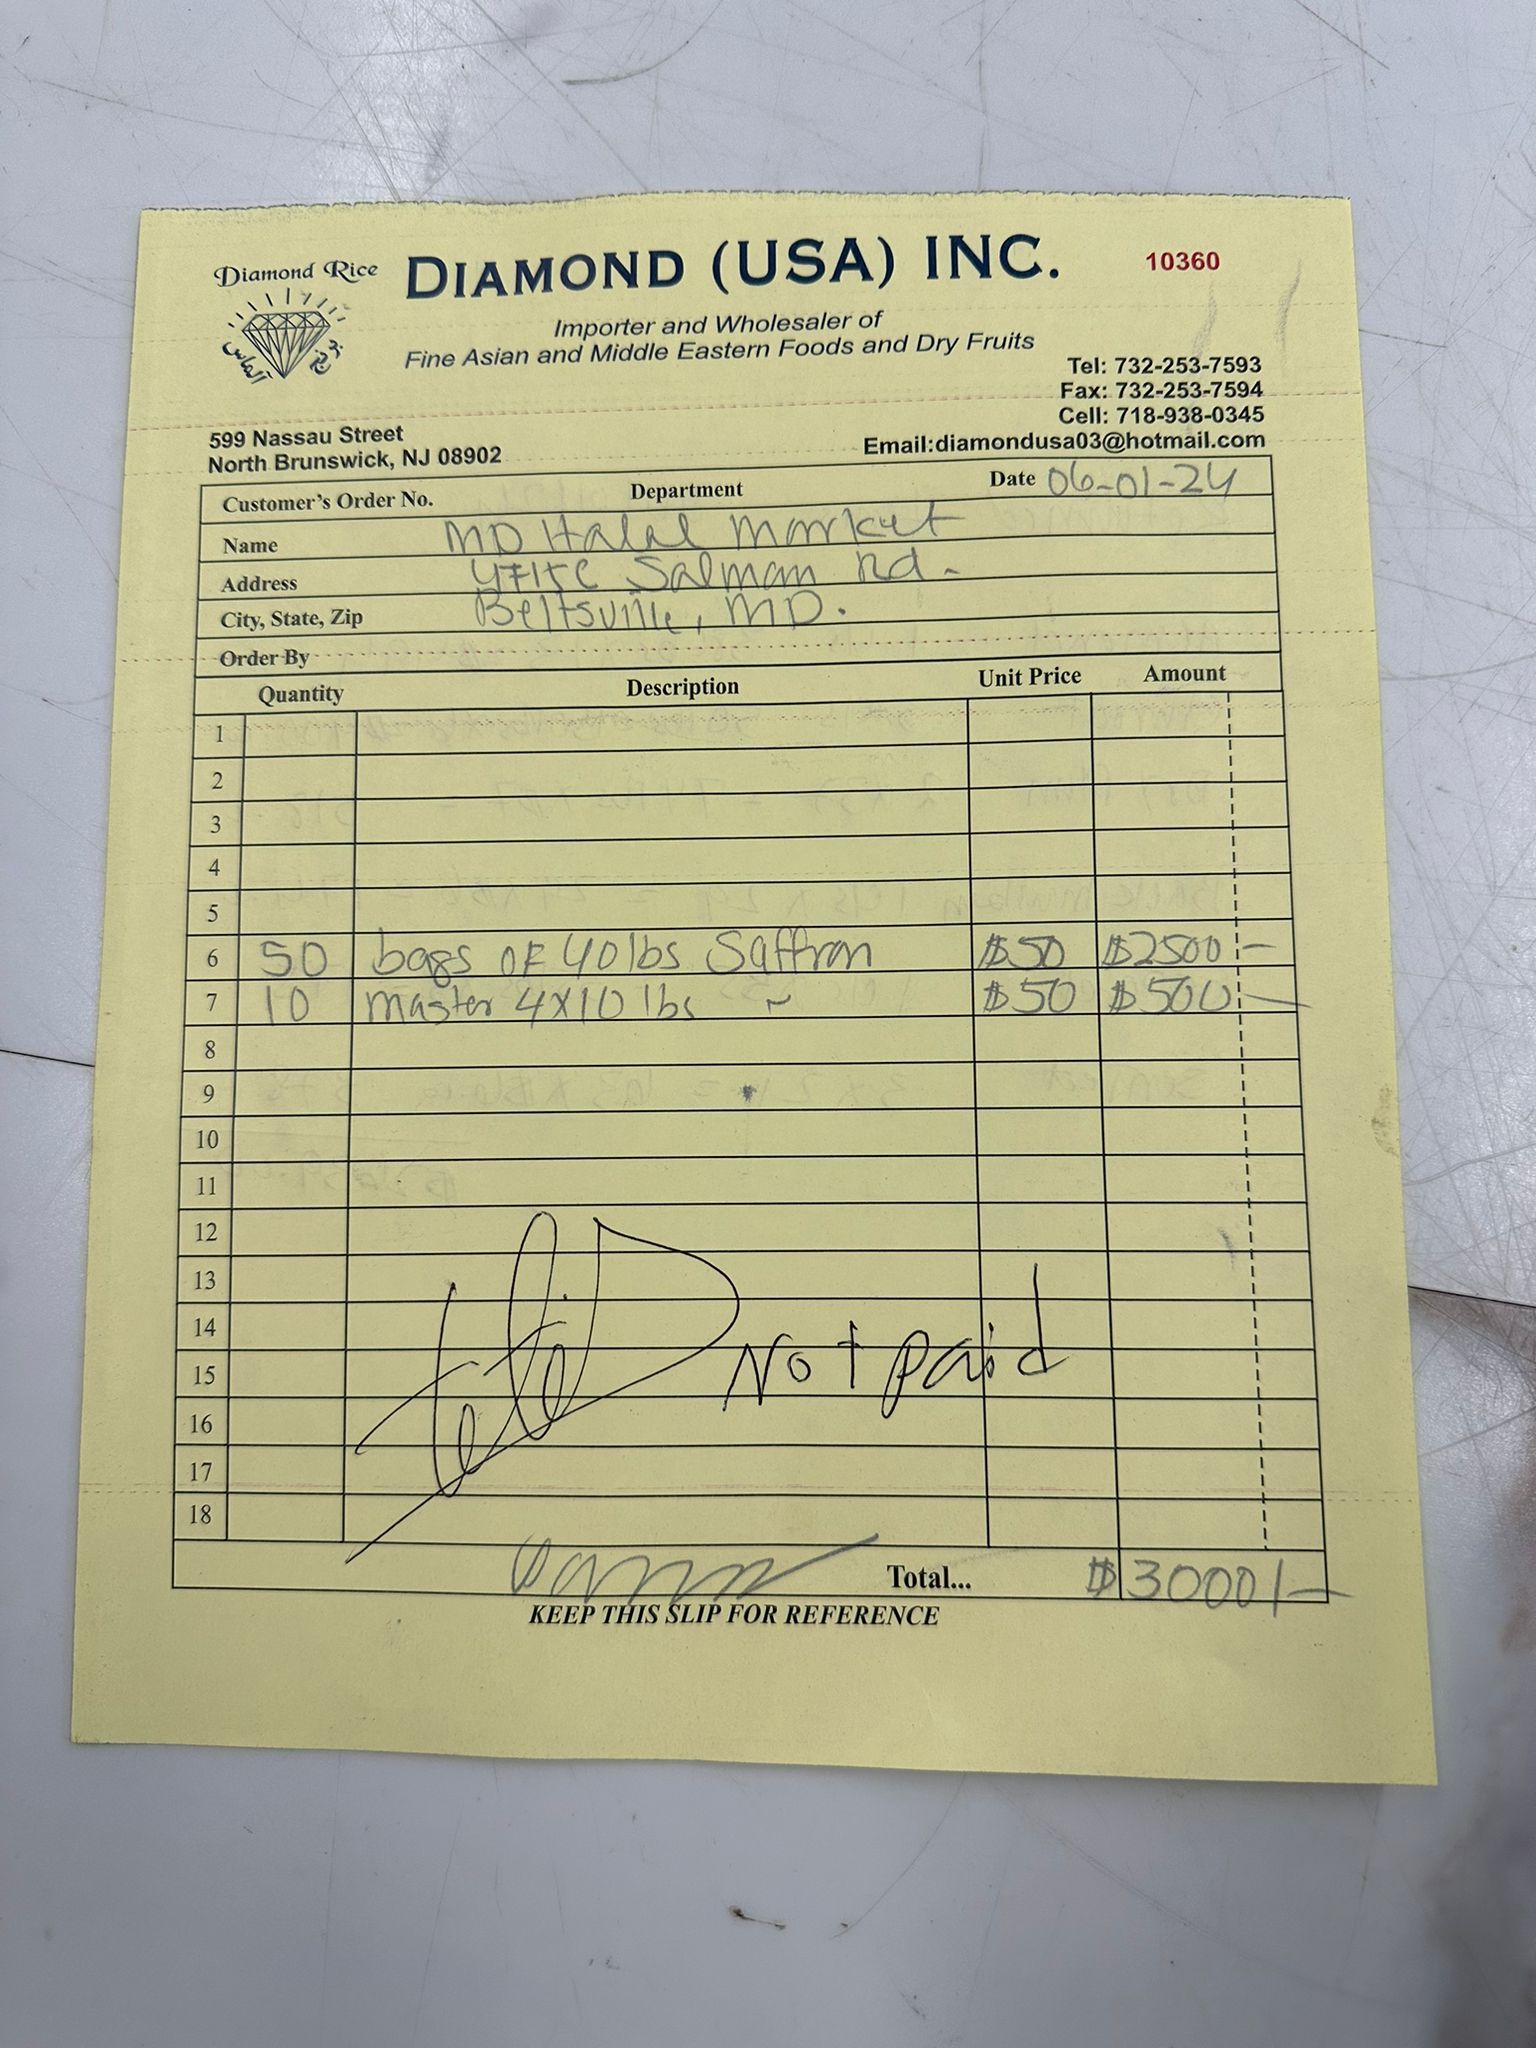 Diamond Rice
DIAMOND (USA) INC.
10360
Importer and Wholesaler of
Fine Asian and Middle Eastern Foods and Dry Fruits
Tel: 732-253-7593
Fax: 732-253-7594
Cell: 718-938-0345
Email:diamondusa03@hotmail.com
599 Nassau Street
North Brunswick, NJ 08902
Customer's Order No. Department Date 06-01-24
Name MD Halal Market
Address 4715C Salman Rd.
City, State, Zip Beltsville, MD.
Order By
Quantity Description Unit Price Amount
1
2
3
4
5
6 50 bags OF 40 lbs Saffron $50 $2500 -
7 10 Master 4X10 lbs ~ $50 $500 -
8
9
10
11
12
13
14
15 Not paid
16
17
18
Total... $3000/-
KEEP THIS SLIP FOR REFERENCE